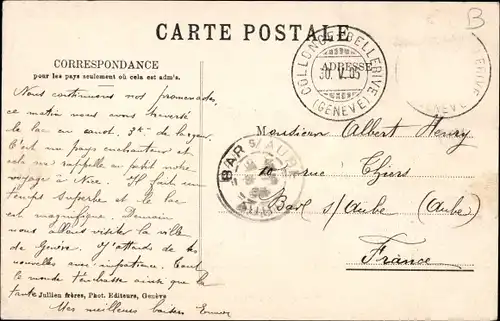 CARTE POSTALE
CORRESPONDANCE
pour les pays seulement où cela est admis.
ADRESSE
COLLONGE-BELLERIVE
30.V.05
(GENÈVE)
GENEVE
B
Nous continuons nos promenades,
ce matin nous avons traversé
le lac en canot. 3k. de largeur
C'est un pays enchanteur et
cela me rappelle un petit notre
voyage à Nice. Il fait un
temps superbe et le lac
est magnifique. Demain
nous allons visiter la ville
de Genève. J'attends de tes
nouvelles avec impatience. Tout
le monde t'embrasse ainsi que la
tante
Mes meilleurs baisers
Jullien frères, Phot. Editeurs, Genève
BAR S/ AUBE
AUBE
Monsieur Albert Henry
10 rue Thiers
Bar s/Aube (Aube)
France